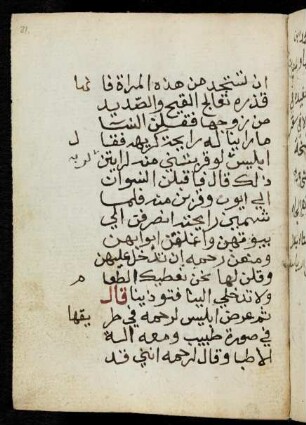 ان تستخدمن هذه المراة فانها
قذره تعالج القيح والصديد
من زوجها فقلن النسا
ما راينا له رايحة كريهه فقال
ابليس لو قربتني منه لرايتن
ذلك قال فاقبلن النسوان
الى ايوب وقربن منه فلما
شممن رايحته انصرفن الى
بيوتهن واغلقن ابوابهن
ومنعن رحمه ان تدخل عليهن
وقلن لها نحن نعطيك الطعام
ولا تدخلي الينا فتوذينا قال
ثم عرض ابليس لرحمه في طريقها
في صورة طبيب ومعه الة
الاطبا وقال لرحمه انني قد